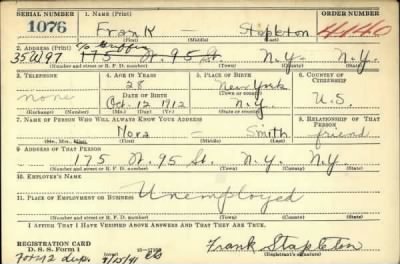 SERIAL NUMBER 1. NAME (Print) ORDER NUMBER
1076 Frank — Stapleton 4440
(First) (Middle) (Last)
2. ADDRESS (Print) c/o Griffin
35 W 97 175 W. 95 St. N.Y. N.Y.
(Number and street or R. F. D. number) (Town) (County) (State)
3. TELEPHONE 4. AGE IN YEARS 5. PLACE OF BIRTH 6. COUNTRY OF CITIZENSHIP
28 New York
none DATE OF BIRTH (Town or county)
Oct. 12 1912 N.Y. U.S.
(Exchange) (Number) (Mo.) (Day) (Yr.) (State or country)
7. NAME OF PERSON WHO WILL ALWAYS KNOW YOUR ADDRESS 8. RELATIONSHIP OF THAT PERSON
Nora — Smith friend
(Mr., Mrs., Miss) (First) (Middle) (Last)
9. ADDRESS OF THAT PERSON
175 W. 95 St. N.Y. N.Y.
(Number and street or R. F. D. number) (Town) (County) (State)
10. EMPLOYER'S NAME
Unemployed
11. PLACE OF EMPLOYMENT OR BUSINESS
(Number and street or R. F. D. number) (Town) (County) (State)
I AFFIRM THAT I HAVE VERIFIED ABOVE ANSWERS AND THAT THEY ARE TRUE.
REGISTRATION CARD
D. S. S. Form 1 Frank Stapleton
(Registrant's signature)